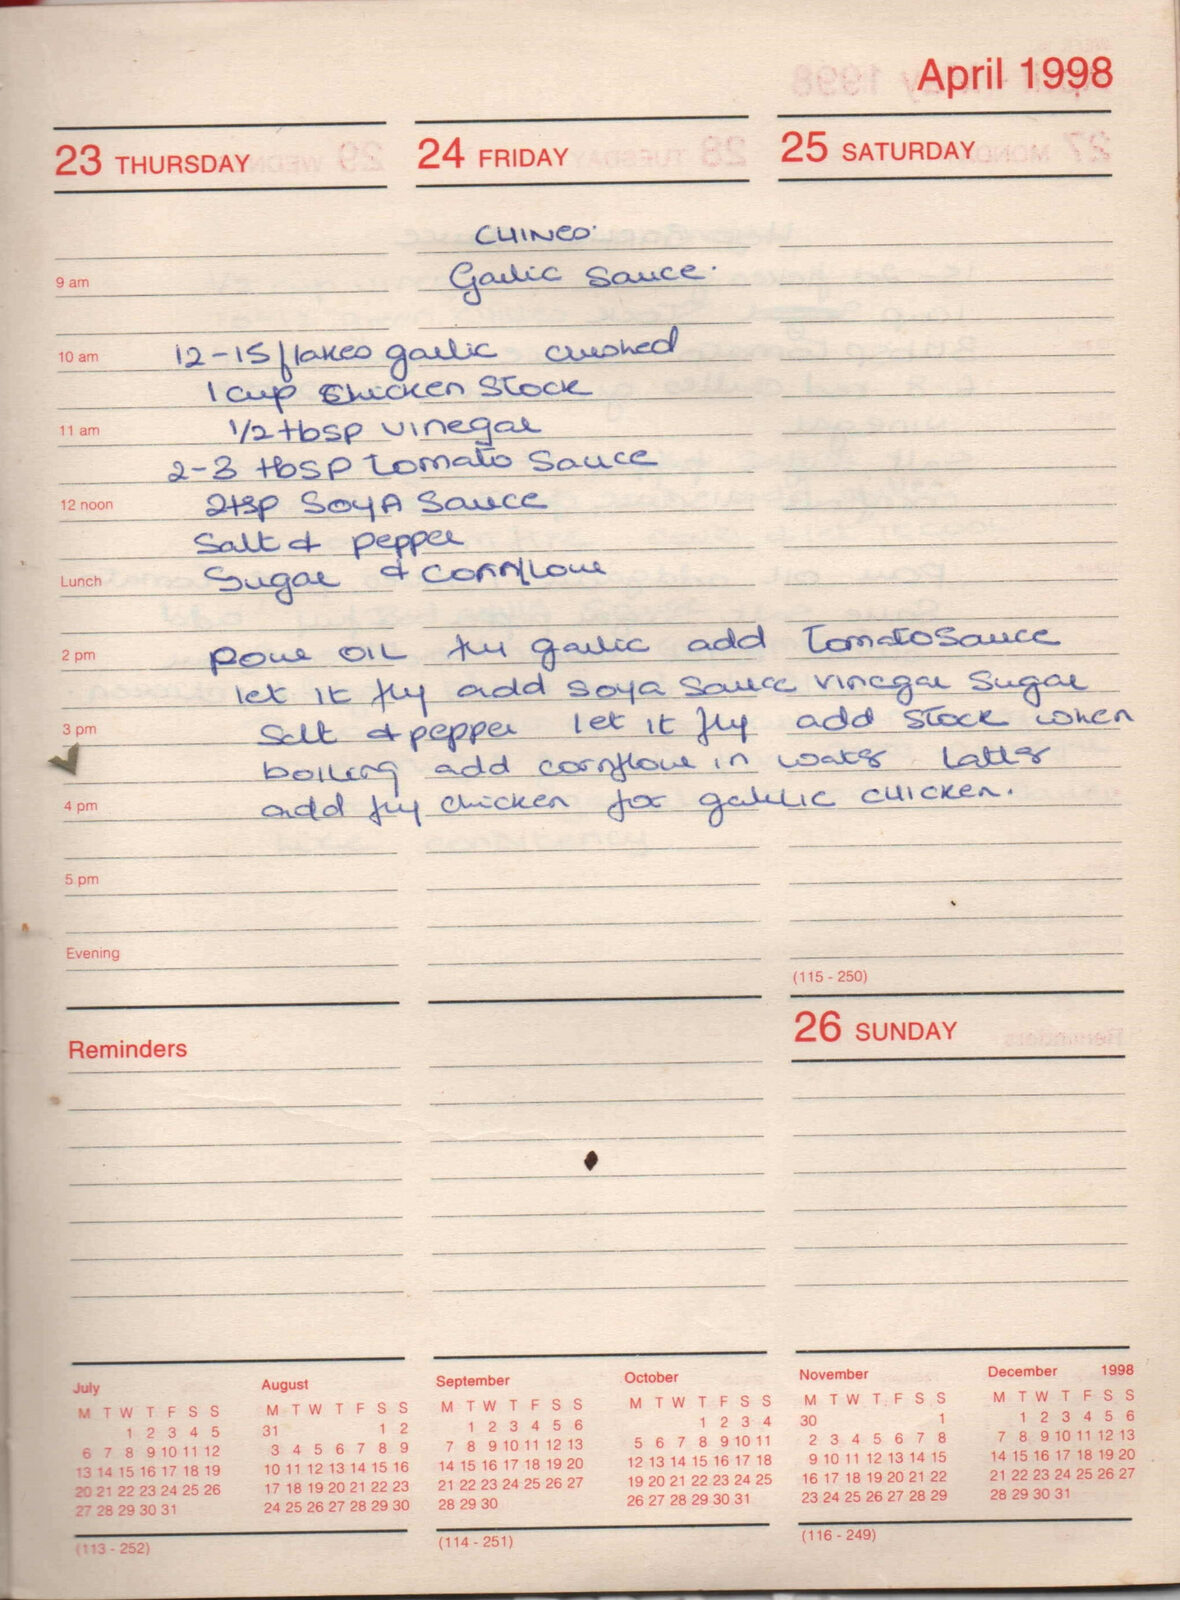 April 1998
23 THURSDAY
24 FRIDAY
25 SATURDAY
CHINES.
Garlic Sauce.
9 am
10 am
12-15 flakes garlic crushed
1 cup chicken stock
11 am
1/2 tbsp vinegar
2-3 tbsp Tomato Sauce
12 noon
2tsp SOYA Sauce
Salt & pepper
Lunch
Sugar & cornflour
2 pm
pour OIL fry garlic add Tomato Sauce
let it fry add soya sauce vinegar sugar
3 pm
salt & pepper let it fry add stock when
boiling add cornflour in water latter
4 pm
add fry chicken for garlic chicken.
5 pm
Evening
(115 - 250)
Reminders
26 SUNDAY
July
M T W T F S S
1 2 3 4 5
6 7 8 9 10 11 12
13 14 15 16 17 18 19
20 21 22 23 24 25 26
27 28 29 30 31
(113 - 252)
August
M T W T F S S
31 1 2
3 4 5 6 7 8 9
10 11 12 13 14 15 16
17 18 19 20 21 22 23
24 25 26 27 28 29 30
September
M T W T F S S
1 2 3 4 5 6
7 8 9 10 11 12 13
14 15 16 17 18 19 20
21 22 23 24 25 26 27
28 29 30
(114 - 251)
October
M T W T F S S
1 2 3 4
5 6 7 8 9 10 11
12 13 14 15 16 17 18
19 20 21 22 23 24 25
26 27 28 29 30 31
November
M T W T F S S
30 1
2 3 4 5 6 7 8
9 10 11 12 13 14 15
16 17 18 19 20 21 22
23 24 25 26 27 28 29
(116 - 249)
December 1998
M T W T F S S
1 2 3 4 5 6
7 8 9 10 11 12 13
14 15 16 17 18 19 20
21 22 23 24 25 26 27
28 29 30 31